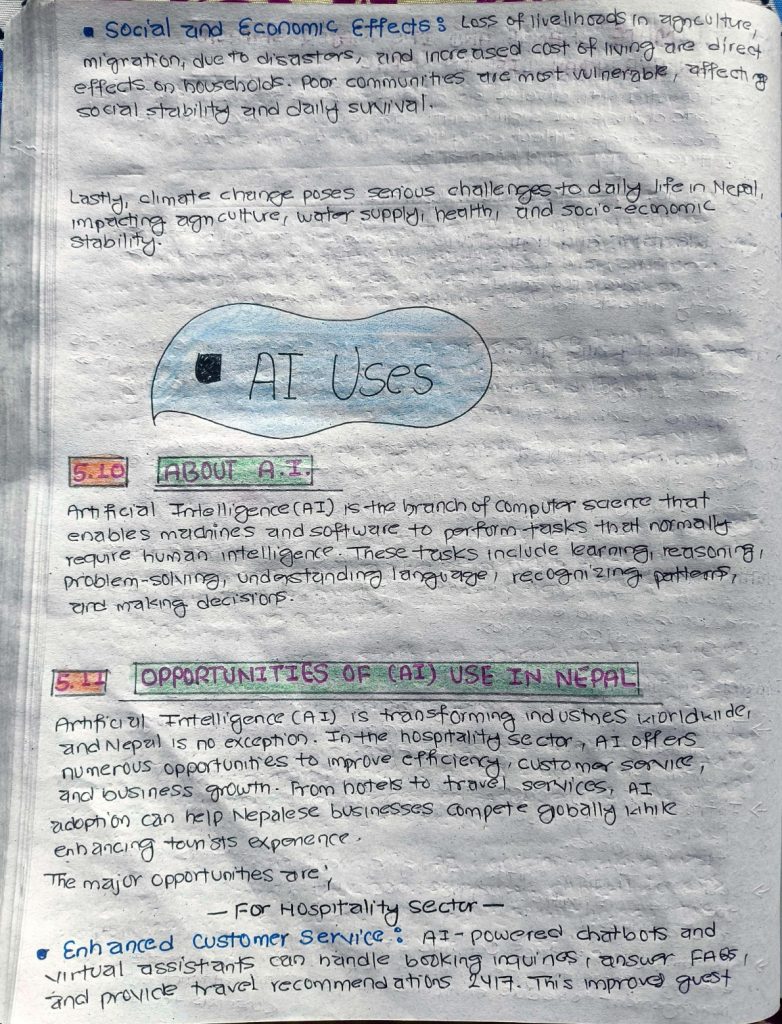 ▪ Social and Economic Effects: Loss of livelihoods in agriculture,
migration, due to disasters, and increased cost of living are direct
effects on households. Poor communities are most vulnerable, affecting
social stability and daily survival.
Lastly, climate change poses serious challenges to daily life in Nepal,
impacting agriculture, water supply, health, and socio-economic
stability.
▪ AI Uses
5.10 ABOUT A.I.
Artificial Intelligence (AI) is the branch of computer science that
enables machines and software to perform tasks that normally
require human intelligence. These tasks include learning, reasoning,
problem-solving, understanding language, recognizing patterns,
and making decisions.
5.11 OPPORTUNITIES OF (AI) USE IN NEPAL
Artificial Intelligence (AI) is transforming industries worldwide,
and Nepal is no exception. In the hospitality sector, AI offers
numerous opportunities to improve efficiency, customer service,
and business growth. From hotels to travel services, AI
adoption can help Nepalese businesses compete gobally while
enhancing tourists experience.
The major opportunities are;
— For Hospitality Sector —
• Enhanced Customer Service: AI-powered chatbots and
virtual assistants can handle booking inquiries, answer FAQs,
and provide travel recommendations 24/7. This improved guest